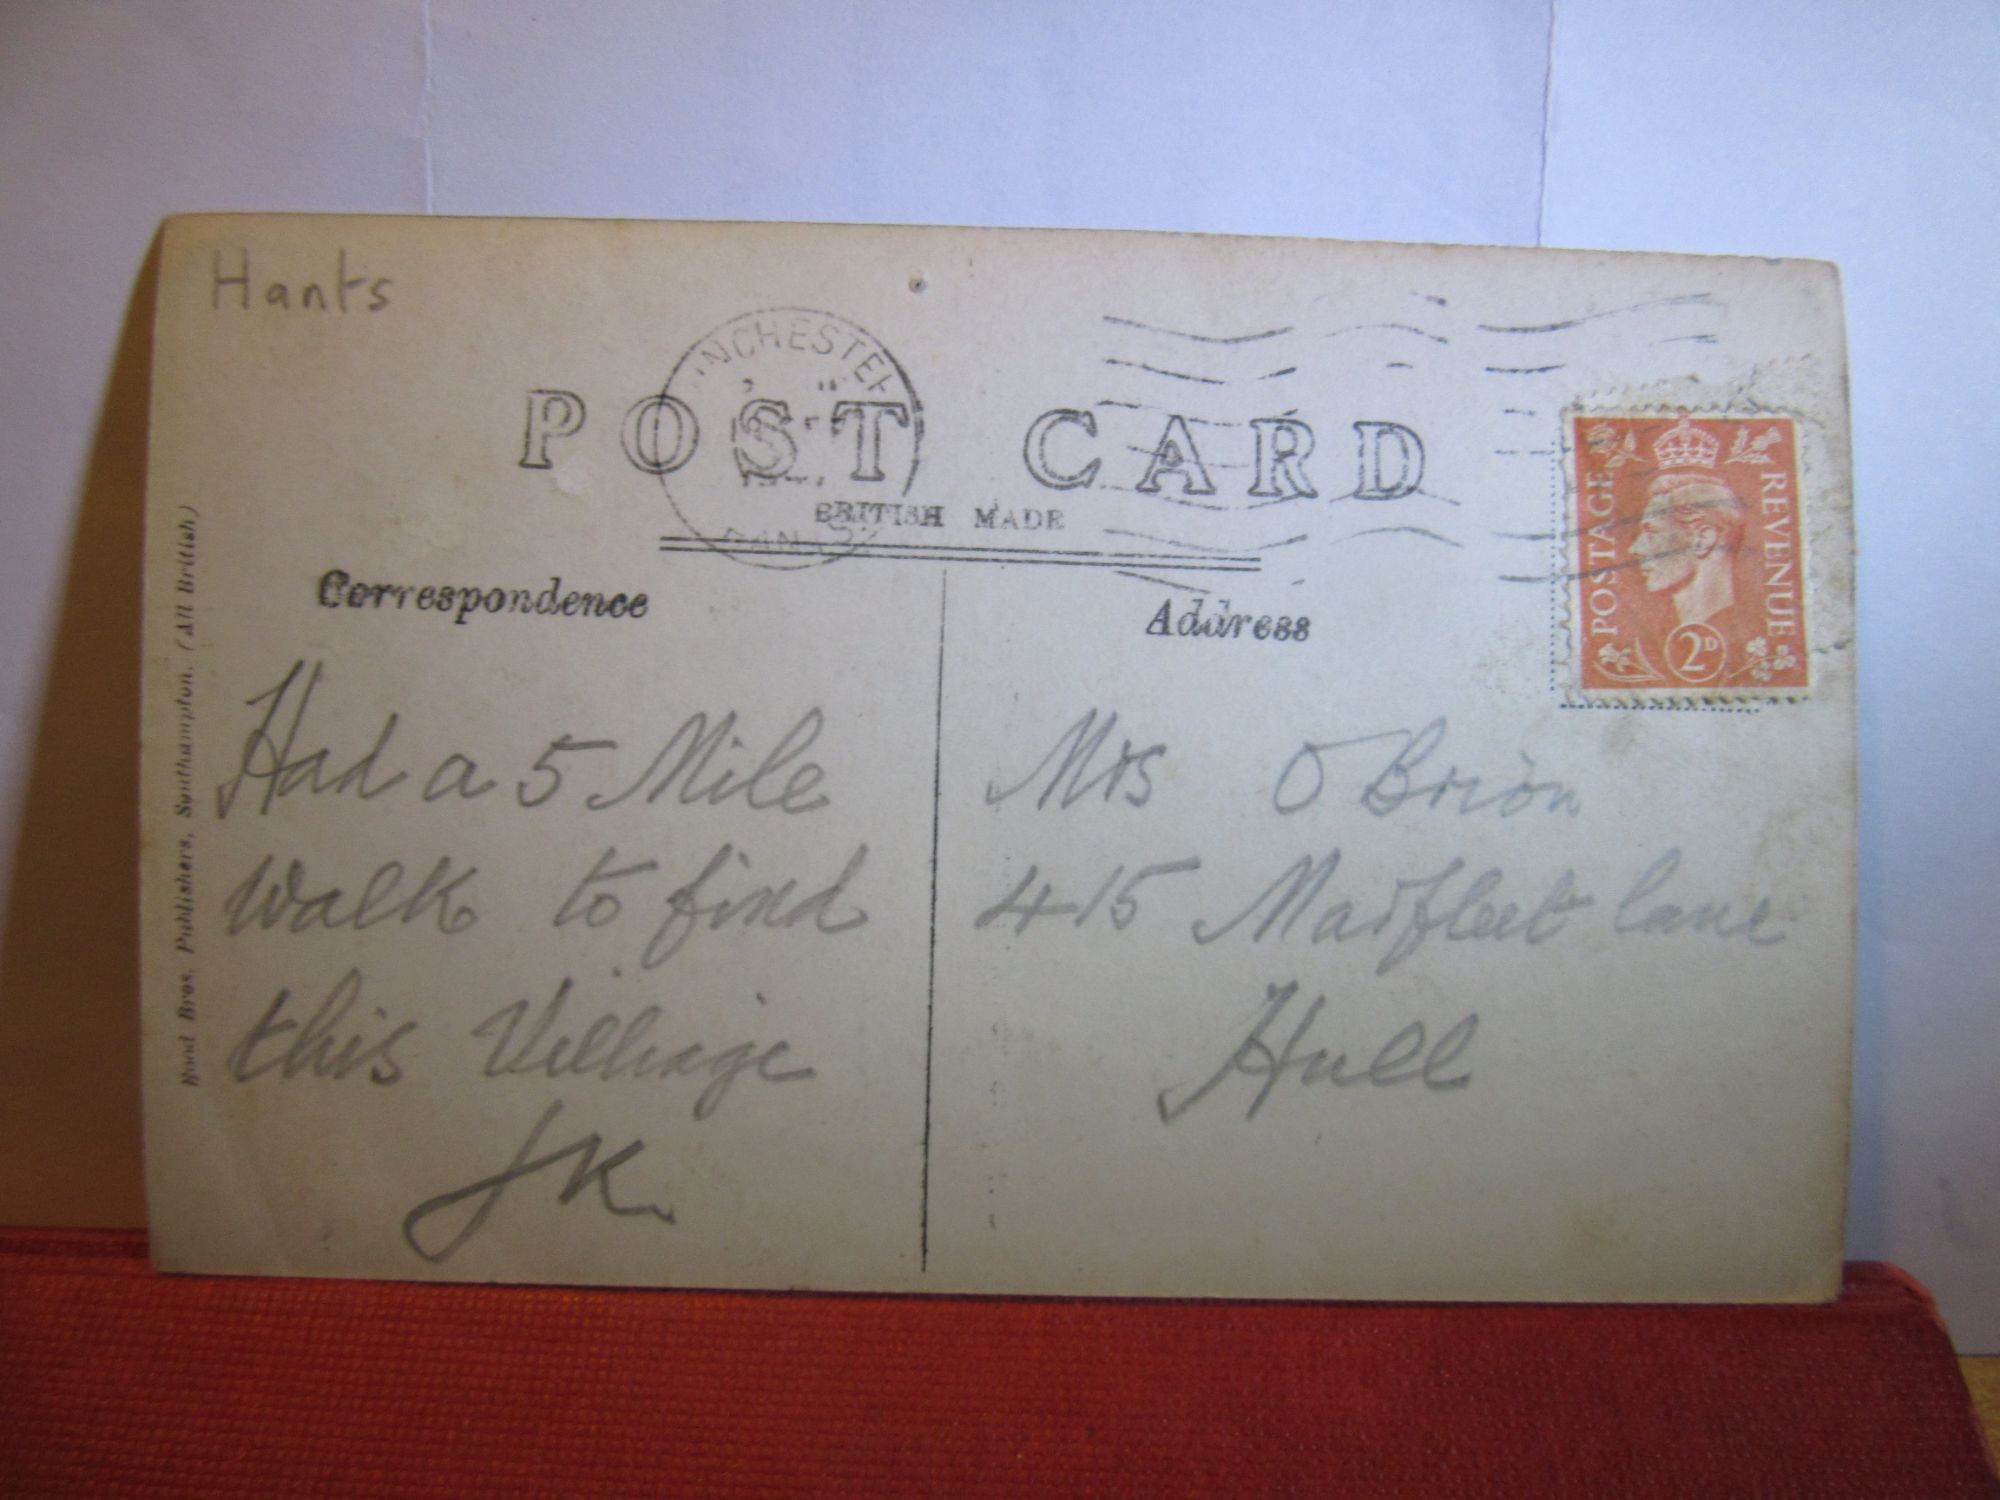 Hants
INCHESTER
HANTS
POST CARD
BRITISH MADE
Correspondence
Address
POSTAGE
REVENUE
2D
Had a 5 Mile
Walk to find
this Village
JK.
Mrs O Brion
415 Marfleet lane
Hull
Hood Bros. Publishers, Southampton. (All British)